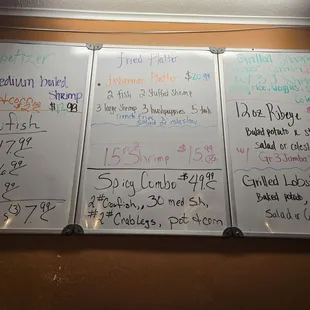 petizer
edium boiled
shrimp
$12.99
ofish
17.99
99
99
(3) 7.99
Fried Platter
Fisherman Platter $20
2 fish 2 Stuffed Shrimp
3 large Shrimp 3 hushpuppies 5
french fries
Salad or coleslaw
15 Shrimp $15.99
Spicy Combo $49.99
2# Crawfish, 30 med Sh,
2# Crab legs, pot & corn
Grilled Shrimp
12oz Ribeye
Baked potato &
salad or coles
w/ Gr 3 Jumbo
Grilled Lobs
Baked potato,
Salad or